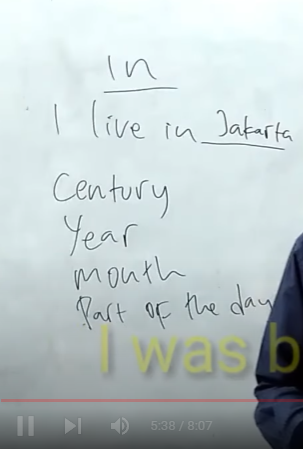 in
I live in Jakarta
Century
Year
month
Part of the day
I was b
5:38 / 8:07